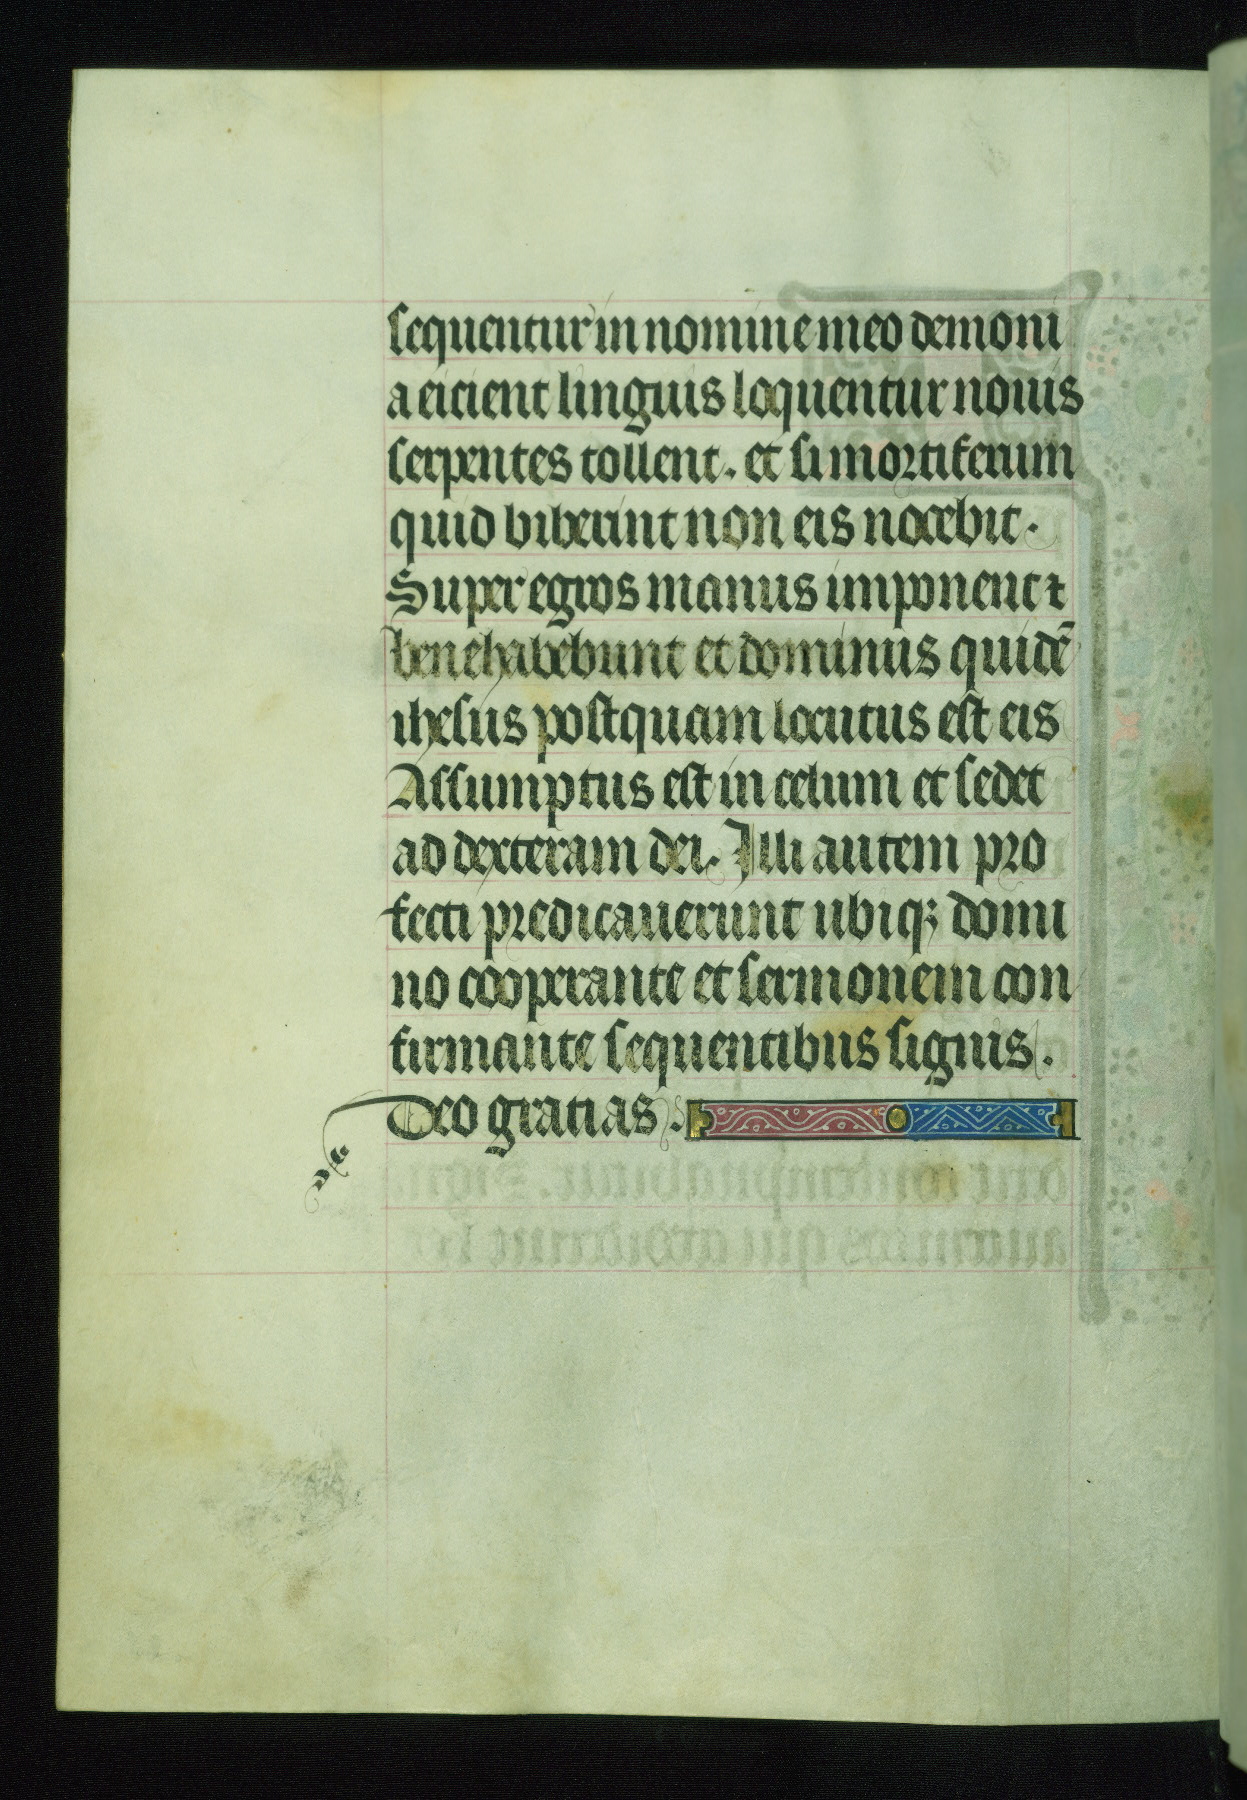 sequentur in nomine meo demoni
a eicient linguis loquentur nouis
serpentes tollent. et si mortiferum
quid biberint non eis nocebit.
Super egros manus imponent ⁊
bene habebunt et dominus quidē
ihesus postquam locutus est eis
Assumptus est in celum et sedet
ad dexteram dei. Illi autem pro
fecti predicauerunt ubiqꝫ domi
no cooperante et sermonem con
firmante sequentibus signis.
Deo gratias.